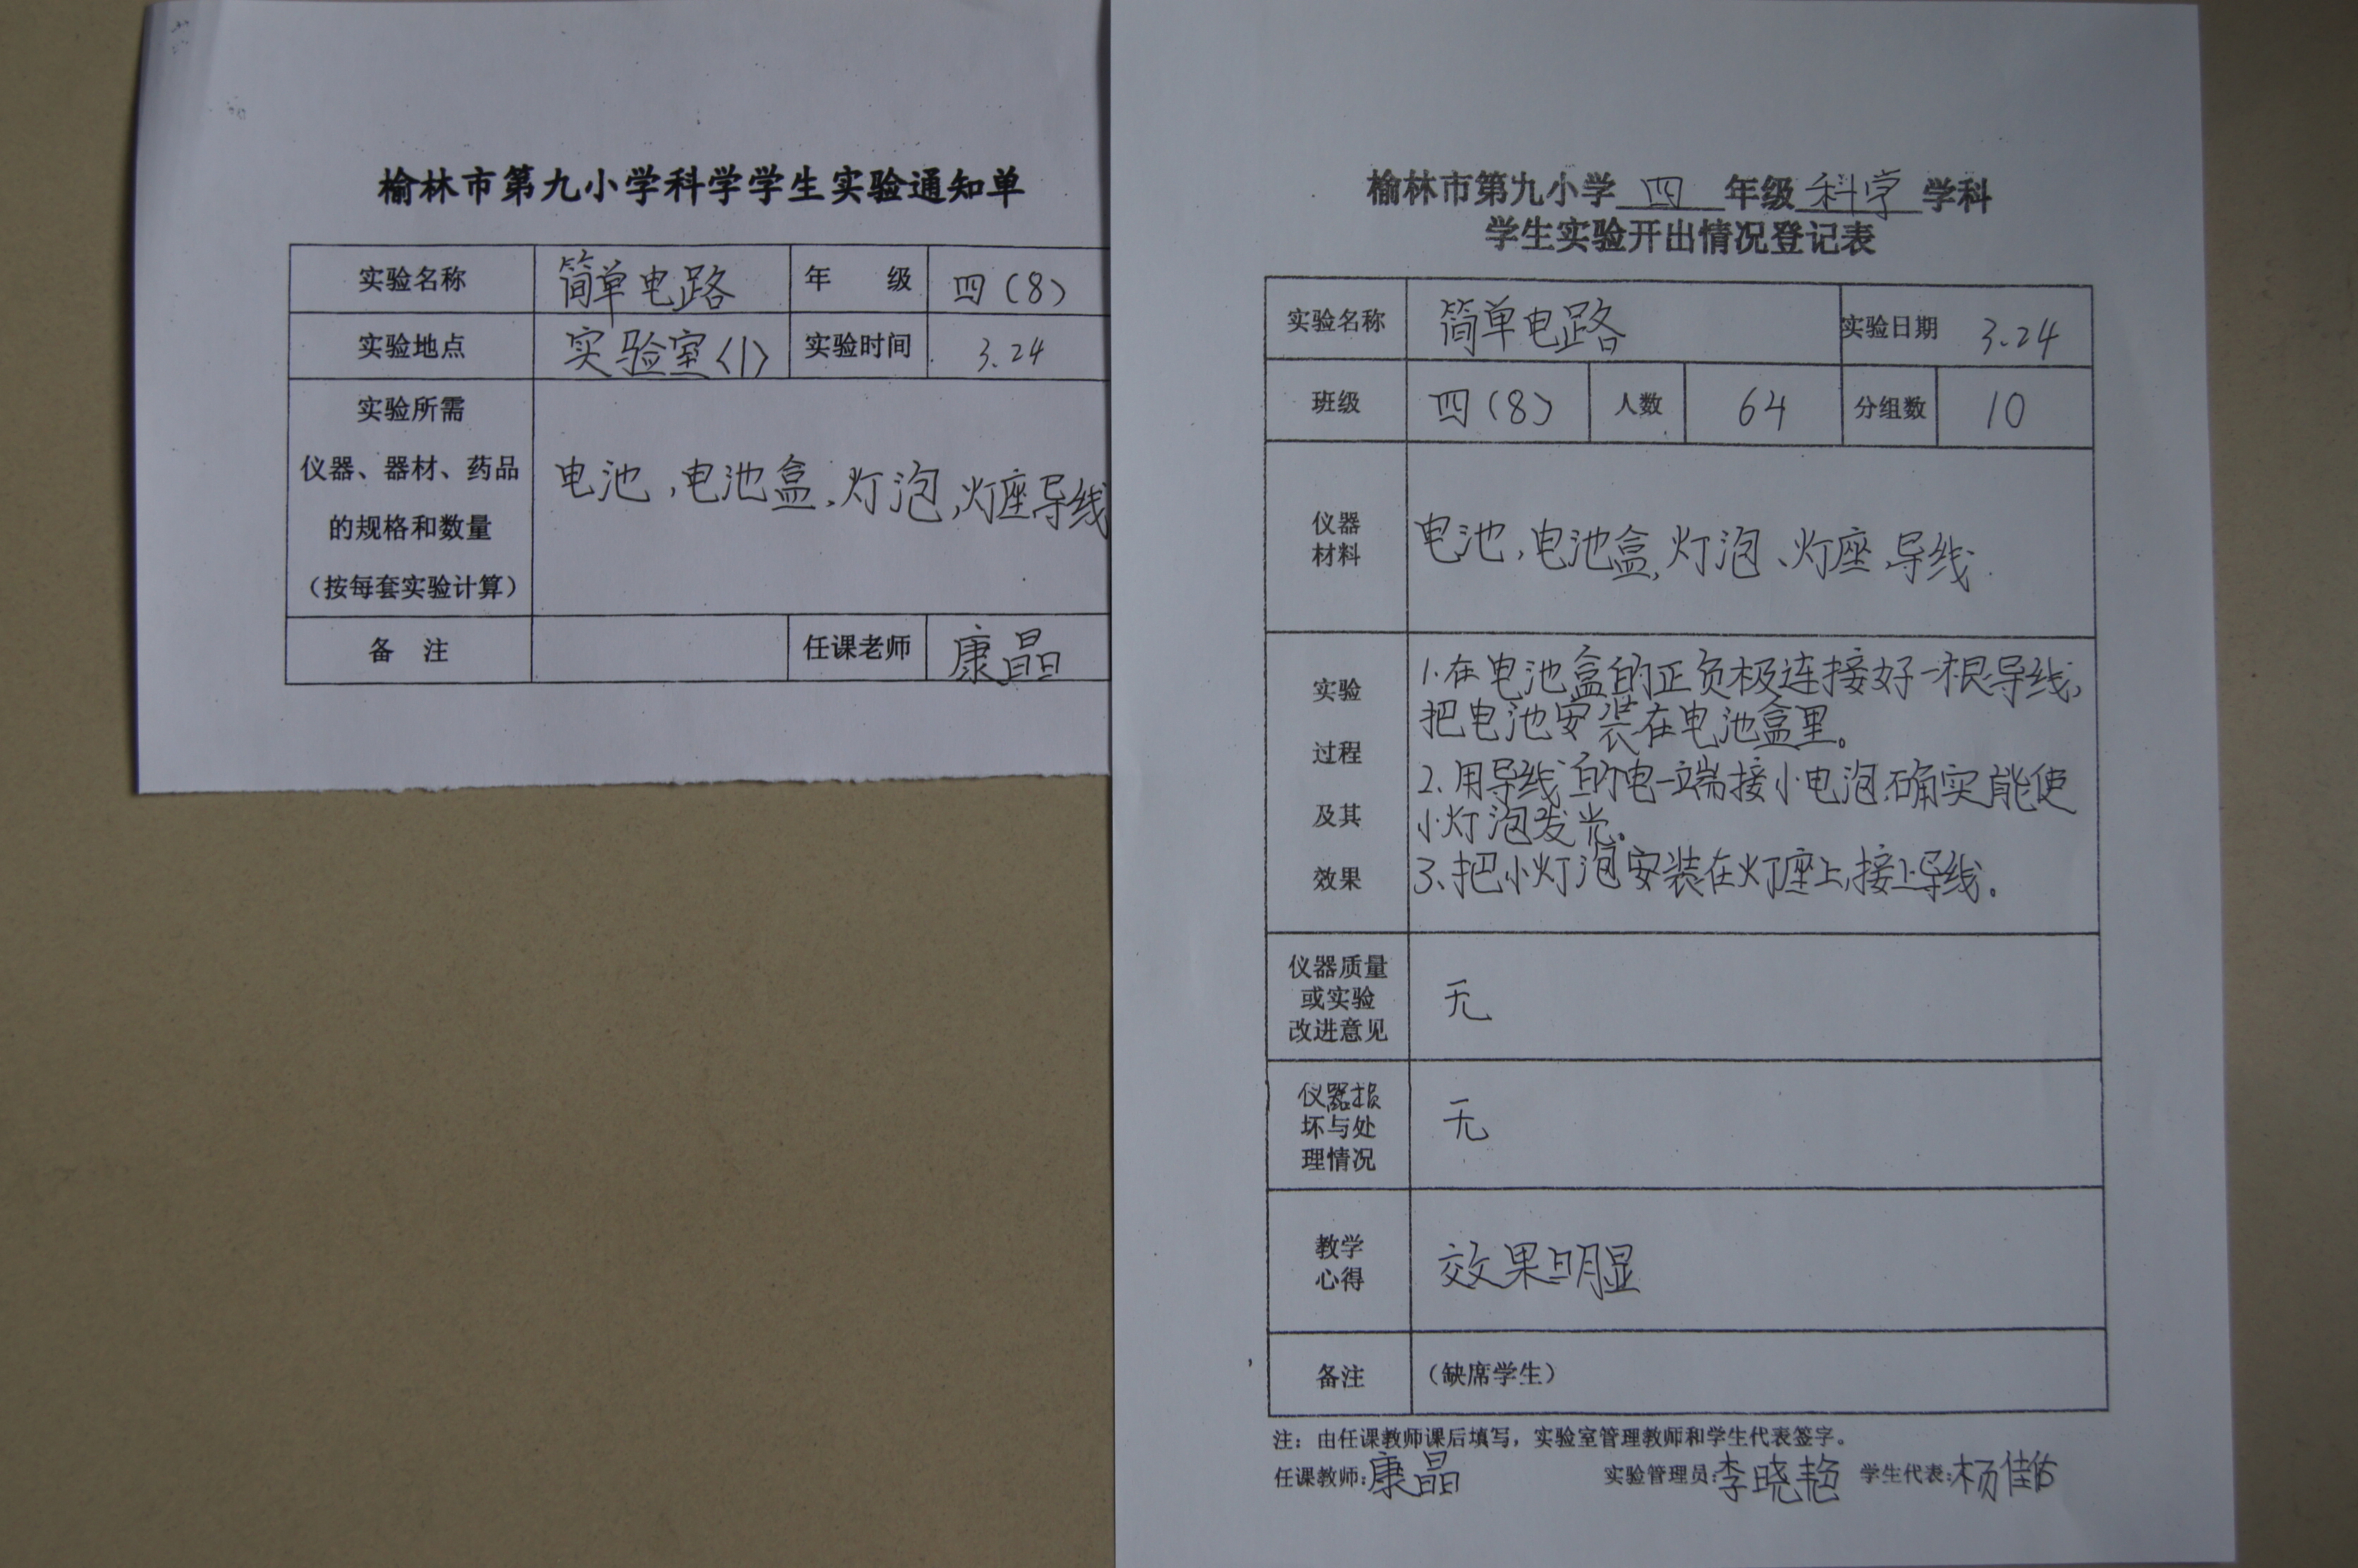 榆林市第九小学科学学生实验通知单
实验名称 简单电路 年 级 四(8)
实验地点 实验室<1> 实验时间 3.24
实验所需
仪器、器材、药品
的规格和数量
(按每套实验计算)
电池,电池盒,灯泡,灯座导线
备 注 任课老师 康晶
榆林市第九小学 四 年级 科学 学科
学生实验开出情况登记表
实验名称 简单电路 实验日期 3.24
班级 四(8) 人数 64 分组数 10
仪器
材料
电池,电池盒,灯泡、灯座,导线.
实验
过程
及其
效果
1.在电池盒的正负极连接好一根导线,
把电池安装在电池盒里。
2.用导线的电一端接小电泡,确实能使
小灯泡发光。
3、把小灯泡安装在灯座上,接上导线。
仪器质量
或实验
改进意见
无
仪器损
坏与处
理情况
无
教学
心得
效果明显
备注 (缺席学生)
注:由任课教师课后填写,实验室管理教师和学生代表签字。
任课教师:康晶 实验管理员:李晓艳 学生代表:杨佳佑